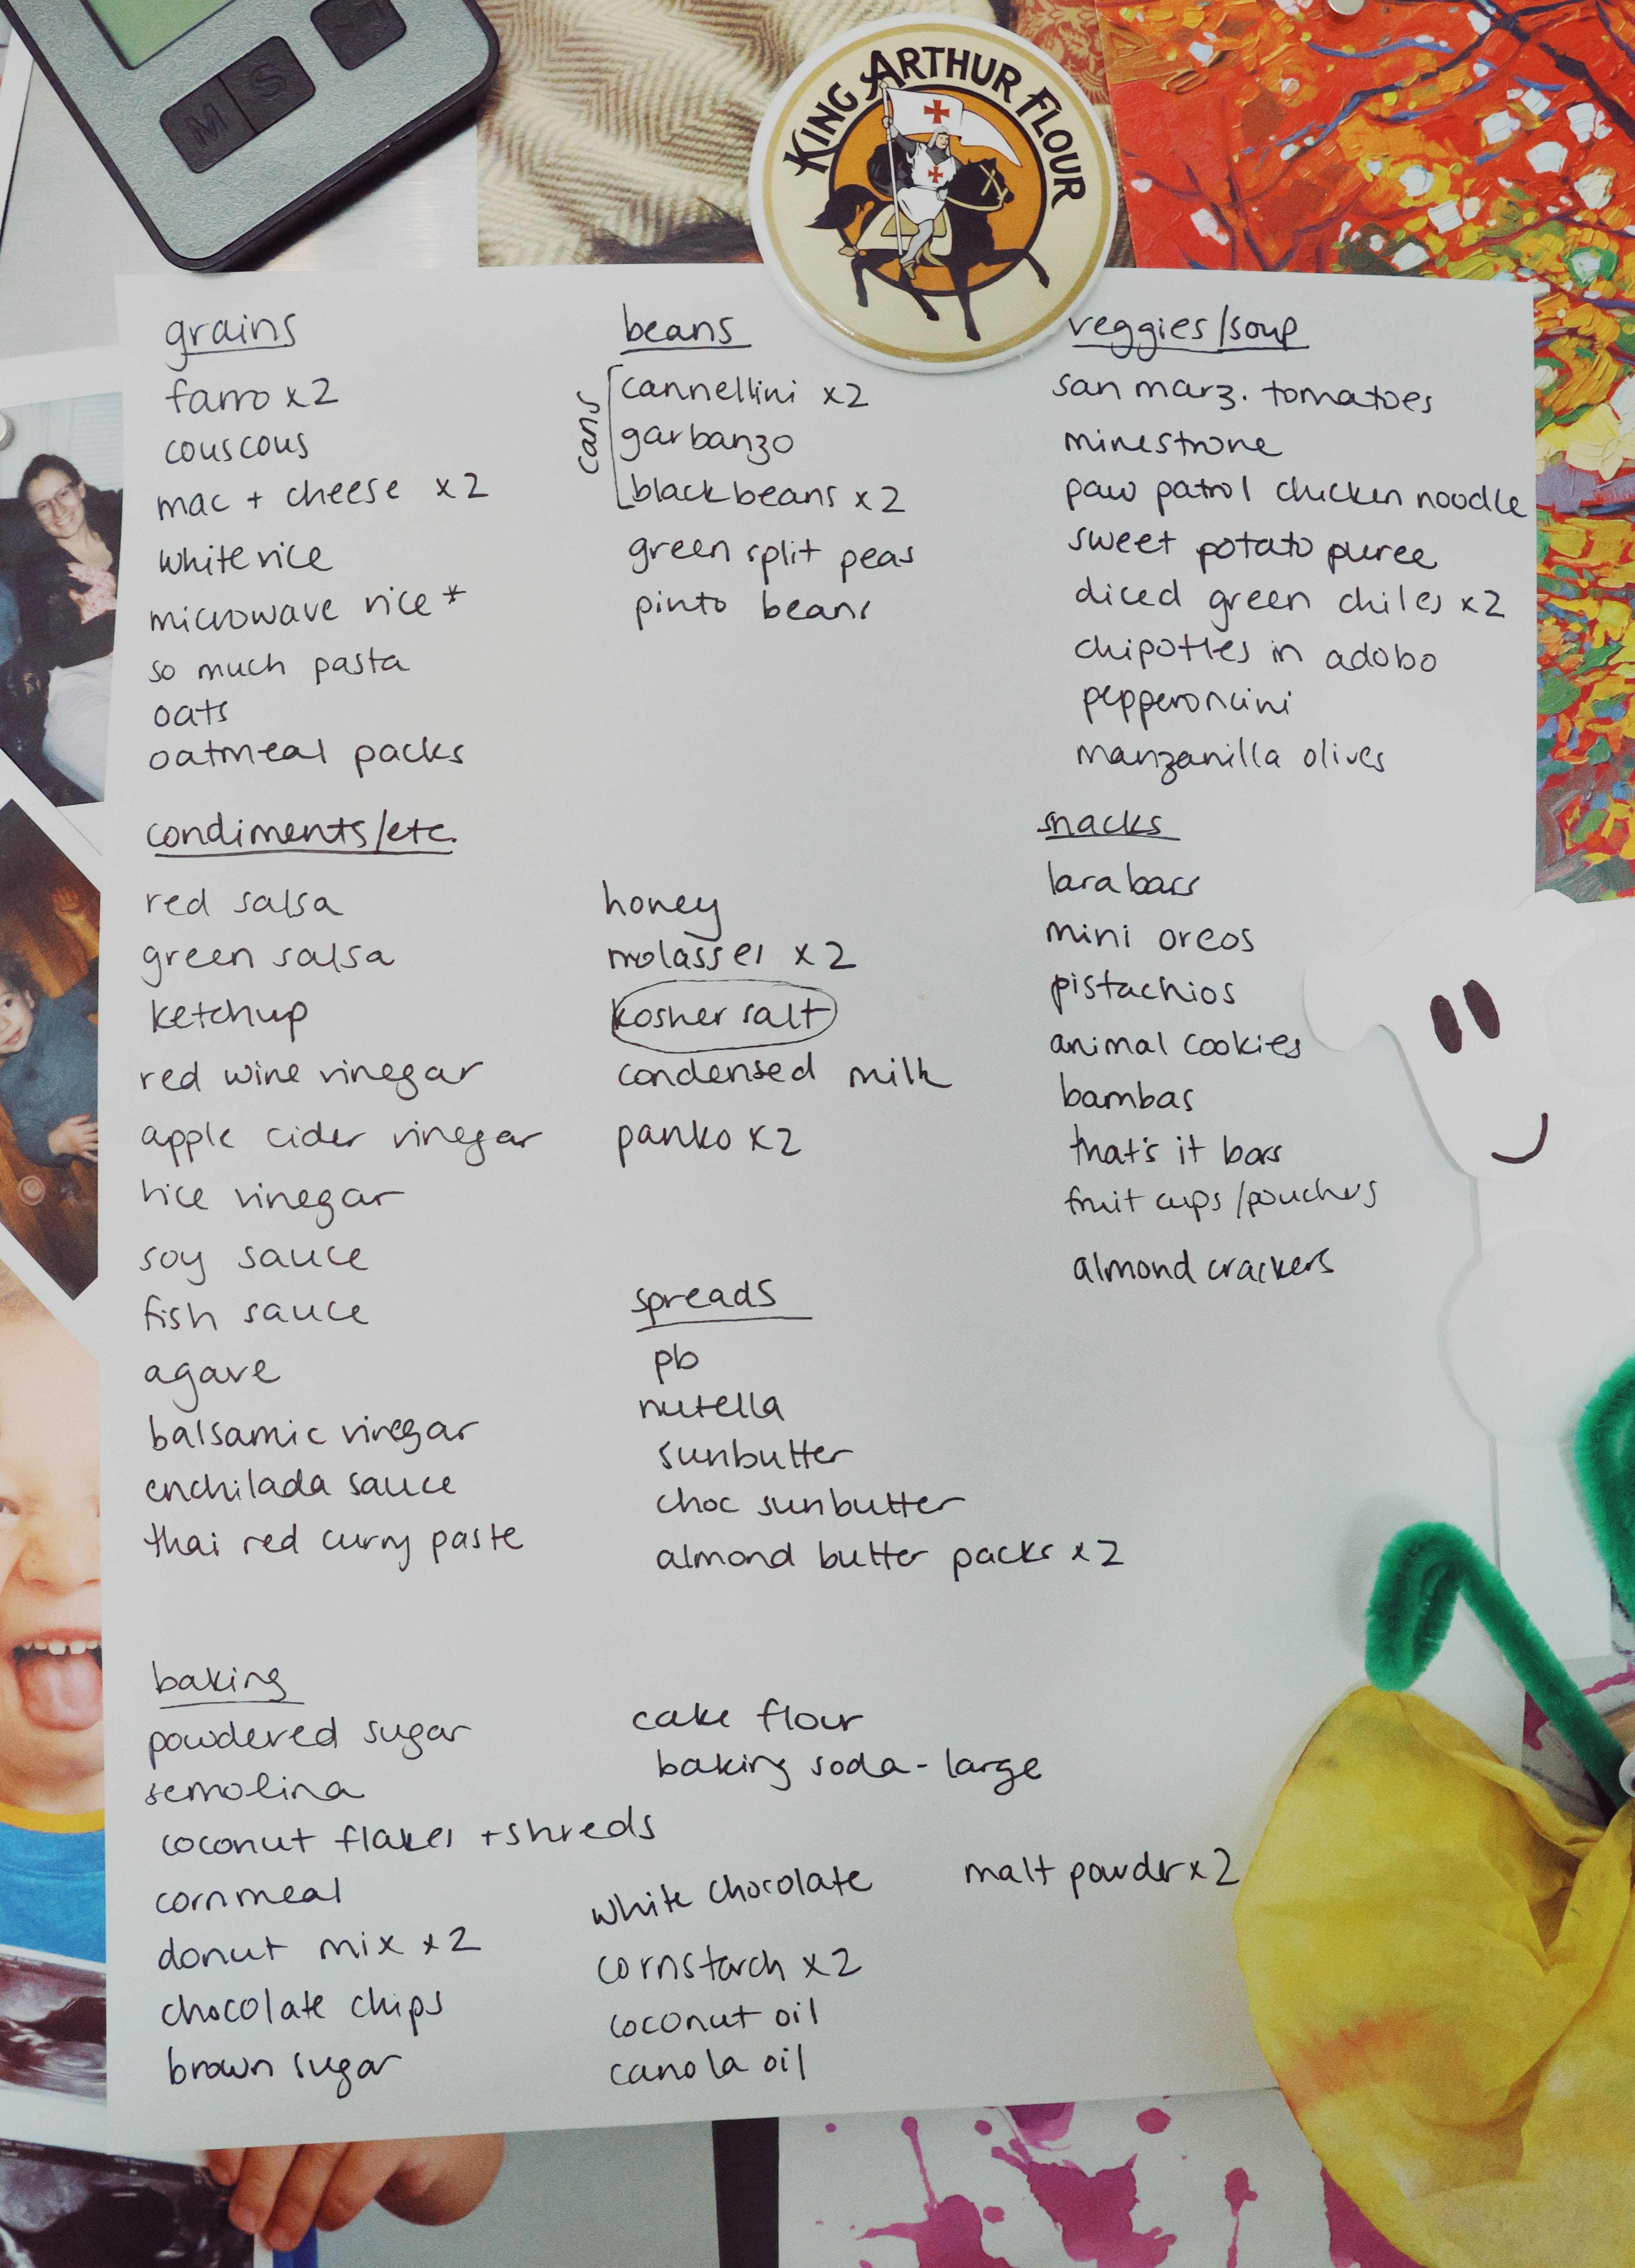 M S
KING ARTHUR FLOUR
grains
farro x2
couscous
mac + cheese x2
white rice
microwave rice*
so much pasta
oats
oatmeal packs
beans
cans
cannellini x2
garbanzo
black beans x2
green split peas
pinto beans
veggies/soup
san marz. tomatoes
minestrone
paw patrol chicken noodle
sweet potato puree
diced green chiles x2
chipotles in adobo
pepperoncini
manzanilla olives
condiments/etc.
red salsa
green salsa
ketchup
red wine vinegar
apple cider vinegar
rice vinegar
soy sauce
fish sauce
agave
balsamic vinegar
enchilada sauce
thai red curry paste
honey
molasses x2
kosher salt
condensed milk
panko x2
snacks
larabars
mini oreos
pistachios
animal cookies
bambas
that's it bars
fruit cups/pouches
almond crackers
spreads
pb
nutella
sunbutter
choc sunbutter
almond butter packs x2
baking
powdered sugar
semolina
coconut flakes + shreds
cornmeal
donut mix x2
chocolate chips
brown sugar
cake flour
baking soda - large
white chocolate
cornstarch x2
coconut oil
canola oil
malt powder x2